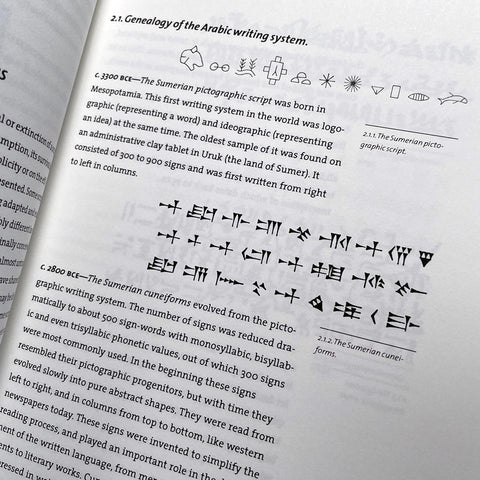 2.1. Genealogy of the Arabic writing system.
c. 3300 BCE—The Sumerian pictographic script was born in
Mesopotamia. This first writing system in the world was logo-
graphic (representing a word) and ideographic (representing
an idea) at the same time. The oldest sample of it was found on
an administrative clay tablet in Uruk (the land of Sumer). It
consisted of 300 to 900 signs and was first written from right
to left in columns.
2.1.1. The Sumerian picto-
graphic script.
c. 2800 BCE—The Sumerian cuneiforms evolved from the picto-
graphic writing system. The number of signs was reduced dra-
matically to about 500 sign-words with monosyllabic, bisyllab-
ic and even trisyllabic phonetic values, out of which 300 signs
were most commonly used. In the beginning these signs
resembled their pictographic progenitors, but with time they
evolved slowly into pure abstract shapes. They were read from
left to right, and in columns from top to bottom, like western
newspapers today. These signs were invented to simplify the
reading process, and played an important role in the
ment of the written language, from
ents to literary works.
pressed in
2.1.2. The Sumerian cunei-
forms.
al or extinction of
mption, its
plicity or on the
resented. Some
g adapted and
bly different
inally
almost
ave
may be